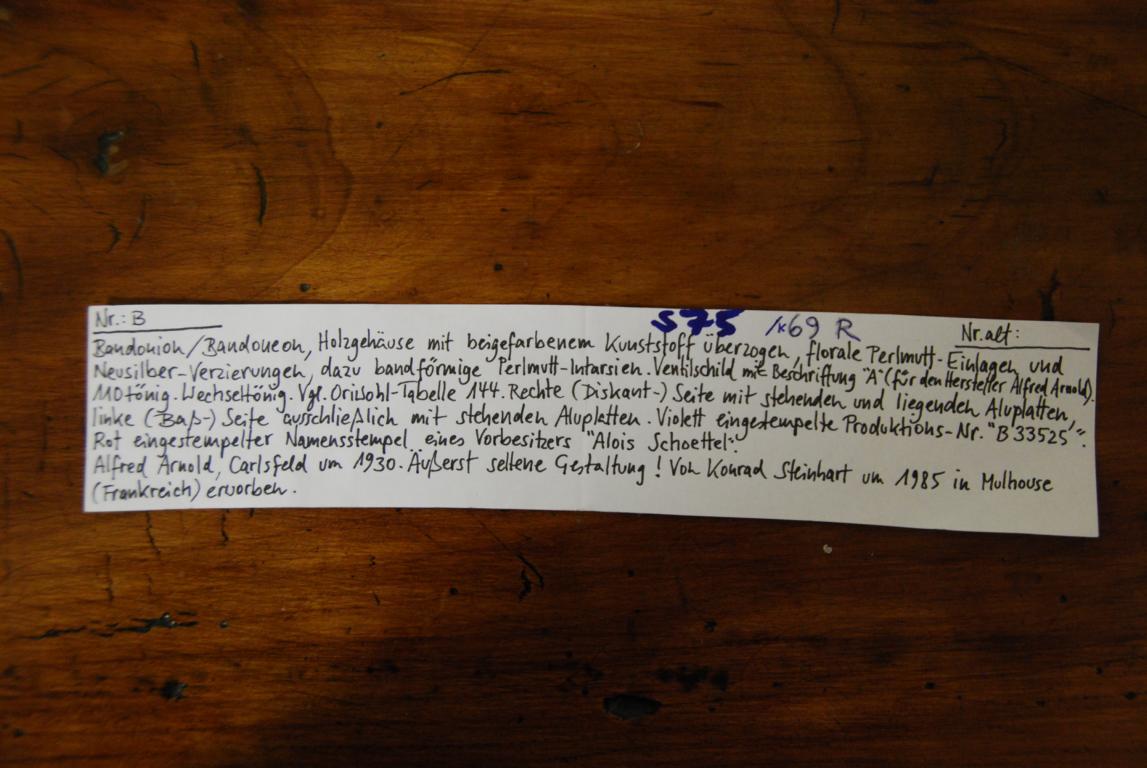 Nr.: B S75 /k69 R Nr. alt:
Bandonion/Bandoneon, Holzgehäuse mit beigefarbenem Kunststoff überzogen, florale Perlmutt-Einlagen und
Neusilber-Verzierungen, dazu bandförmige Perlmutt-Intarsien. Ventilschild mit Beschriftung "A" (für den Hersteller Alfred Arnold).
110tönig. Wechseltönig. Vgl. Oriwohl-Tabelle 144. Rechte (Diskant-) Seite mit stehenden und liegenden Aluplatten,
linke (Baß-) Seite ausschließlich mit stehenden Aluplatten. Violett eingestempelte Produktions-Nr. "B 33525".
Rot eingestempelter Namensstempel eines Vorbesitzers "Alois Schoettel".
Alfred Arnold, Carlsfeld um 1930. Äußerst seltene Gestaltung! Von Konrad Steinhart um 1985 in Mulhouse
(Frankreich) erworben.